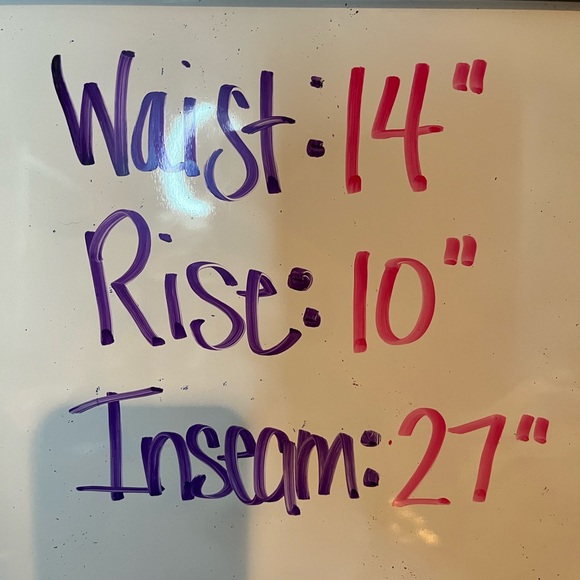 Waist: 14"
Rise: 10"
Inseam: 27"